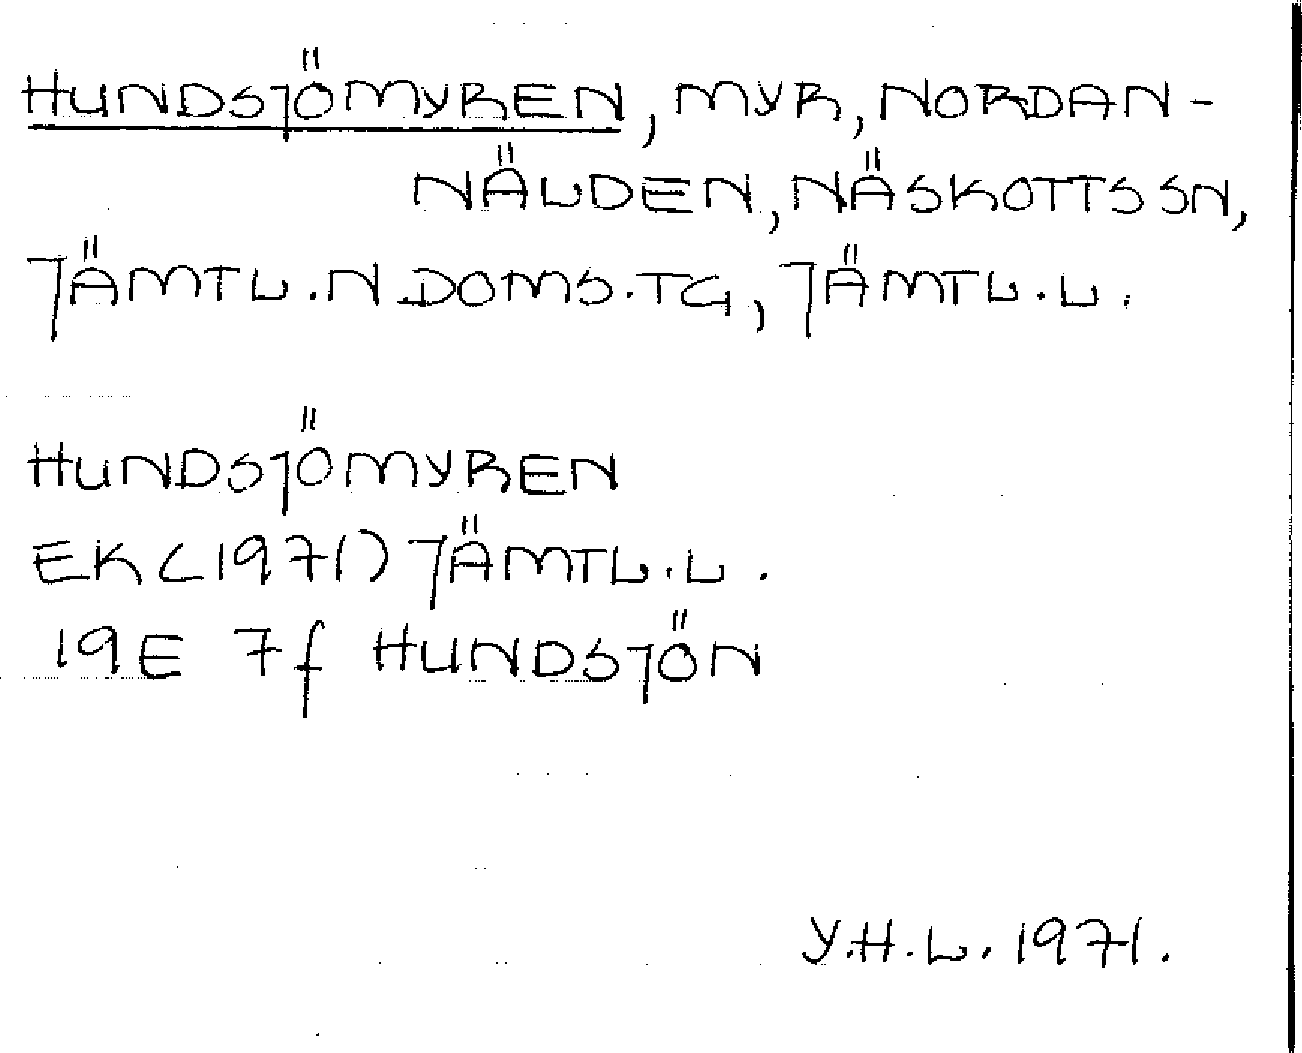 HUNDSJÖMYREN, MYR, NORDAN-
NÄLDEN, NÄSKOTTS SN,
JÄMTL. N DOMS. TG, JÄMTL. L.
HUNDSJÖMYREN
EK (1971) JÄMTL. L.
19E 7f HUNDSJÖN
Y.H.L. 1971.